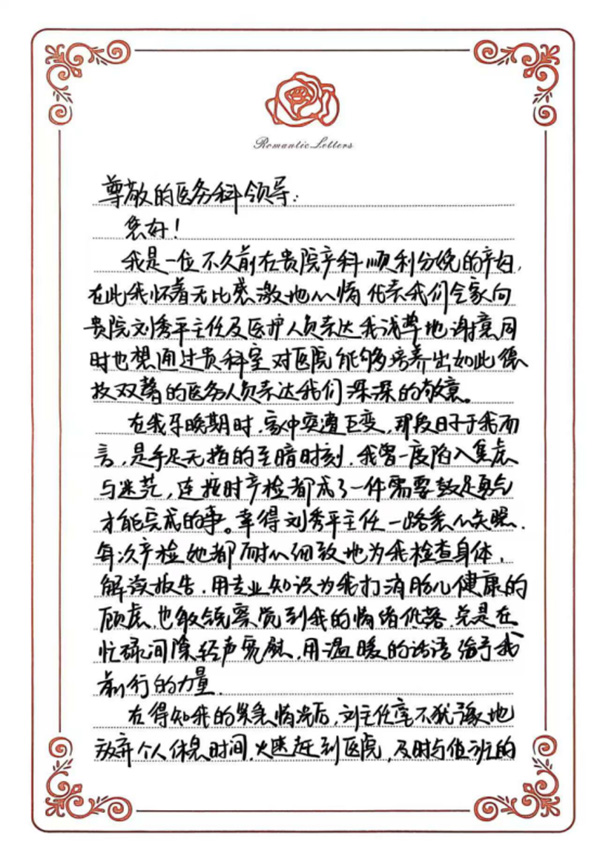 Romantic Letters
尊敬的医务科领导：
您好！
我是一位不久前在贵院产科顺利分娩的产妇，
在此我怀着无比感激地心情代表我们全家向
贵院刘秀平主任及医护人员表达我诚挚地谢意，同
时也想通过贵科室对医院能够培养出如此德
技双馨的医务人员表达我们深深的敬意。
在我孕晚期时，家中突遭巨变，那段日子于我而
言，是手足无措的至暗时刻，我曾一度陷入焦虑
与迷茫，连按时产检都成了一件需要鼓足勇气
才能完成的事。幸得刘秀平主任一路悉心照顾，
每次产检她都耐心细致地为我检查身体，
解读报告，用专业知识为我打消胎儿健康的
顾虑，也敏锐察觉到我的情绪低落，总是在
忙碌间隙轻声宽慰，用温暖的话语给予我
前行的力量。
在得知我的紧急情况后，刘主任毫不犹豫地
放弃个人休息时间，火速赶到医院，及时与值班的